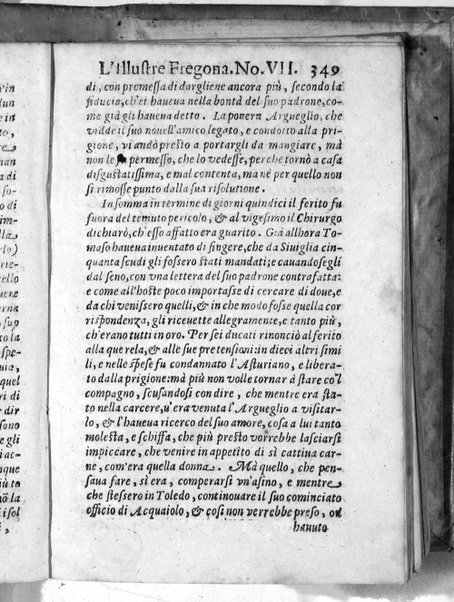 L'Illustre Fregona. No. VII. 349
di, con promessa di dargliene ancora più, secondo la
fiducia, ch'ei haueua nella bontà del suo padrone, co-
me già gli haueua detto. La ponera Argueglio, che
vidde il suo nouell'amico legato, e condotto alla pri-
gione, vi andò presto a portargli da mangiare, mà
non le permesso, che lo vedesse, perche tornò a casa
disgustatissima, e mal contenta, ma nè per quello non
si rimosse punto dalla sua risolutione.
In somma in termine di giorni quindici il ferito fu
fuora del temuto pericolo, & al vigesimo il Chirurgo
dichiarò, ch'esso affatto era guarito. Già allhora To-
maso haueua inuentato di fingere, che da Siuiglia cin-
quanta scudi gli fossero stati mandati; e cauandosegli
dal seno, con vna lettera del suo padrone contrafatta:
e come all'hoste poco importasse di cercare di doue, e
da chi venissero quelli, & in che modo fosse quella cor
rispondenza, gli riceuette allegramente, e tanto più,
ch'erano tutti in oro. Per sei ducati rinonciò al ferito
alla querela, & alle sue pretensioni: in dieci altri simi
li, e nelle spese fu condannato l'Asturiano, e libera-
to dalla prigione: mà più non volle tornar à stare co'l
compagno, scusandosi con dire, che mentre era sta-
to nella carcere, u'era venuta l'Argueglio a visitar-
lo, & l'haueua ricerco del suo amore, cosa a lui tanto
molesta, e schiffa, che più presto vorrebbe lasciarsi
impiccare, che venire in appetito di sì cattiua car-
ne, com'era quella donna. Mà quello, che pen-
saua fare, sì era, comperarsi vn'asino, e mentre
che stessero in Toledo, continouare il suo cominciato
officio di Acquaiolo, & così non verrebbe preso, ò
hauuto